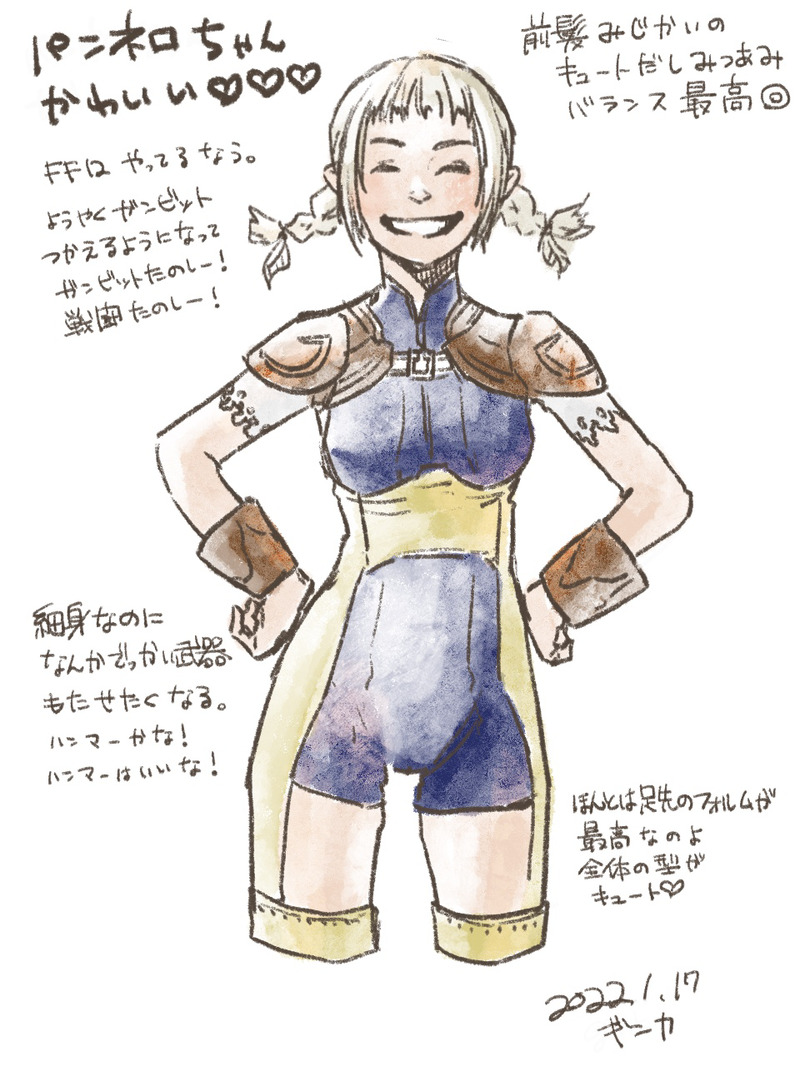 パンネロちゃん
かわいい♡♡♡
前髪みじかいの
キュートだしみつあみ
バランス最高◎
FF12やってるなう。
ようやくガンビット
つかえるようになって
ガンビットたのしー!
戦闘たのしー!
細身なのに
なんかでっかい武器
もたせたくなる。
ハンマーかな!
ハンマーはいいな!
ほんとは足先のフォルムが
最高なのよ
全体の型が
キュート♡
2022.1.17
ギンカ